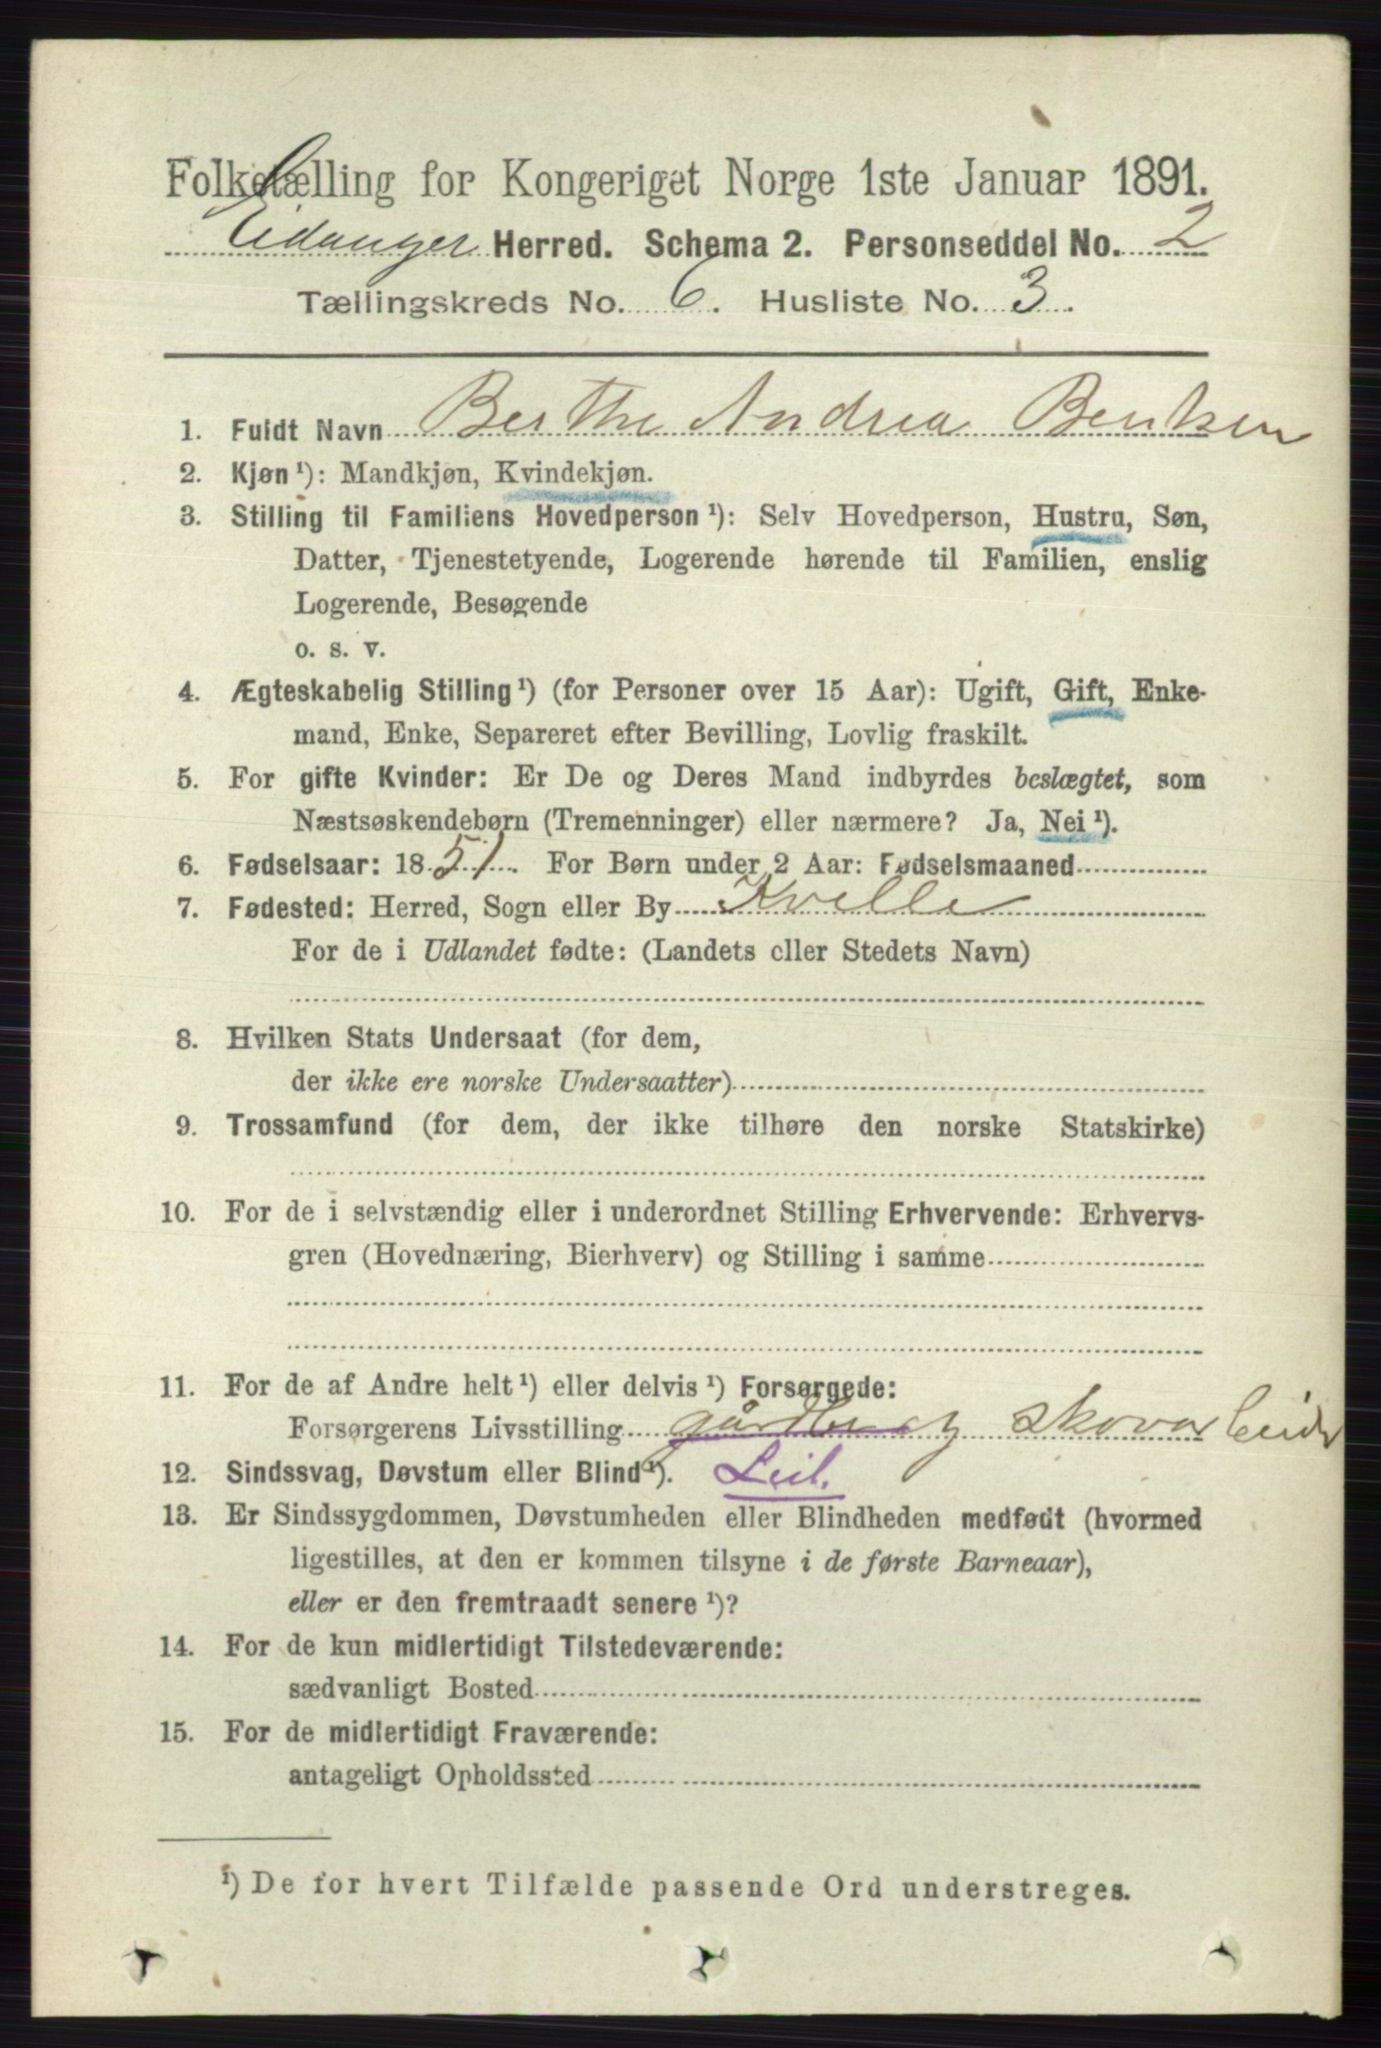 Folketælling for Kongeriget Norge 1ste Januar 1891.
Eidanger Herred. Schema 2. Personseddel No. 2
Tællingskreds No. 6. Husliste No. 3.
1. Fuldt Navn Berthe Andrea Bentsen
2. Kjøn ¹): Mandkjøn, Kvindekjøn.
3. Stilling til Familiens Hovedperson ¹): Selv Hovedperson, Hustru, Søn,
Datter, Tjenestetyende, Logerende hørende til Familien, enslig
Logerende, Besøgende
o. s. v.
4. Ægteskabelig Stilling ¹) (for Personer over 15 Aar): Ugift, Gift, Enke-
mand, Enke, Separeret efter Bevilling, Lovlig fraskilt.
5. For gifte Kvinder: Er De og Deres Mand indbyrdes beslægtet, som
Næstsøskendebørn (Tremenninger) eller nærmere? Ja, Nei ¹).
6. Fødselsaar: 1851. For Børn under 2 Aar: Fødselsmaaned
7. Fødested: Herred, Sogn eller By Kvelle
For de i Udlandet fødte: (Landets eller Stedets Navn)
8. Hvilken Stats Undersaat (for dem,
der ikke ere norske Undersaatter)
9. Trossamfund (for dem, der ikke tilhøre den norske Statskirke)
10. For de i selvstændig eller i underordnet Stilling Erhvervende: Erhvervs-
gren (Hovednæring, Bierhverv) og Stilling i samme
11. For de af Andre helt ¹) eller delvis ¹) Forsørgede:
Forsørgerens Livsstilling gårdbr og skovarbeider
12. Sindssvag, Døvstum eller Blind ¹). Leil.
13. Er Sindssygdommen, Døvstumheden eller Blindheden medfødt (hvormed
ligestilles, at den er kommen tilsyne i de første Barneaar),
eller er den fremtraadt senere ¹)?
14. For de kun midlertidigt Tilstedeværende:
sædvanligt Bosted
15. For de midlertidigt Fraværende:
antageligt Opholdssted
¹) De for hvert Tilfælde passende Ord understreges.